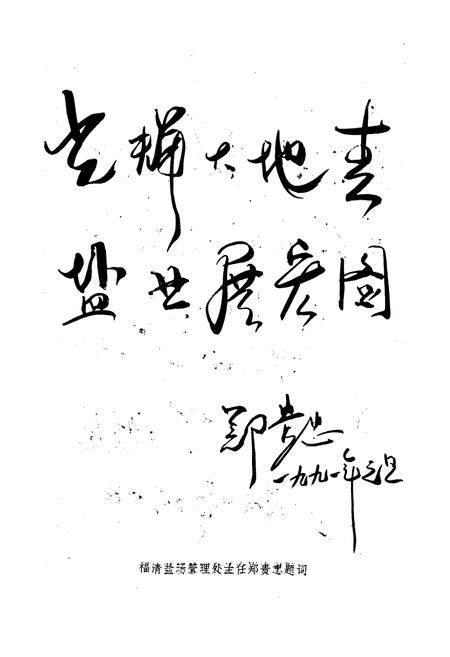 光辉大地春
盐业展宏图
郑贵忠
一九九一年元旦
福清盐场管理处主任郑贵忠题词